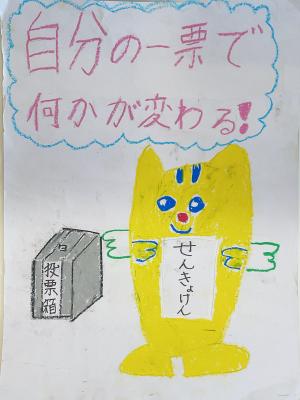 自分の一票で
何かが変わる!
投票箱
せんきょけん